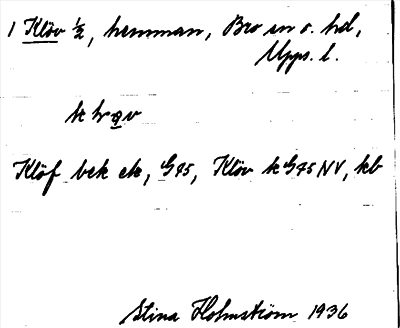 1 Klöv ½, hemman, Bro sn o. hd,
Upps. l.
Klöf bek ek, G95, Klöv k G45 NV, kb
Stina Holmström 1936